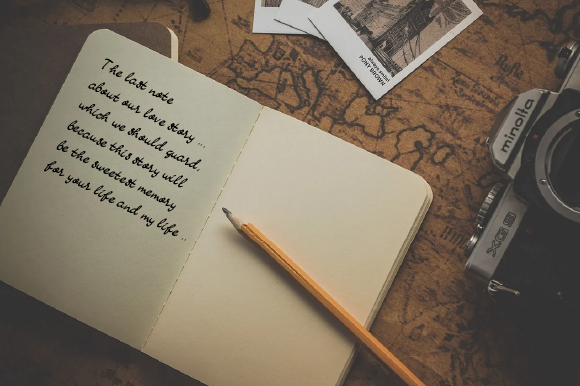 The last note
about our love story ...
which we should guard,
because this story will
be the sweetest memory
for your life and my life ..
minolta
XG9
PONY BROWN